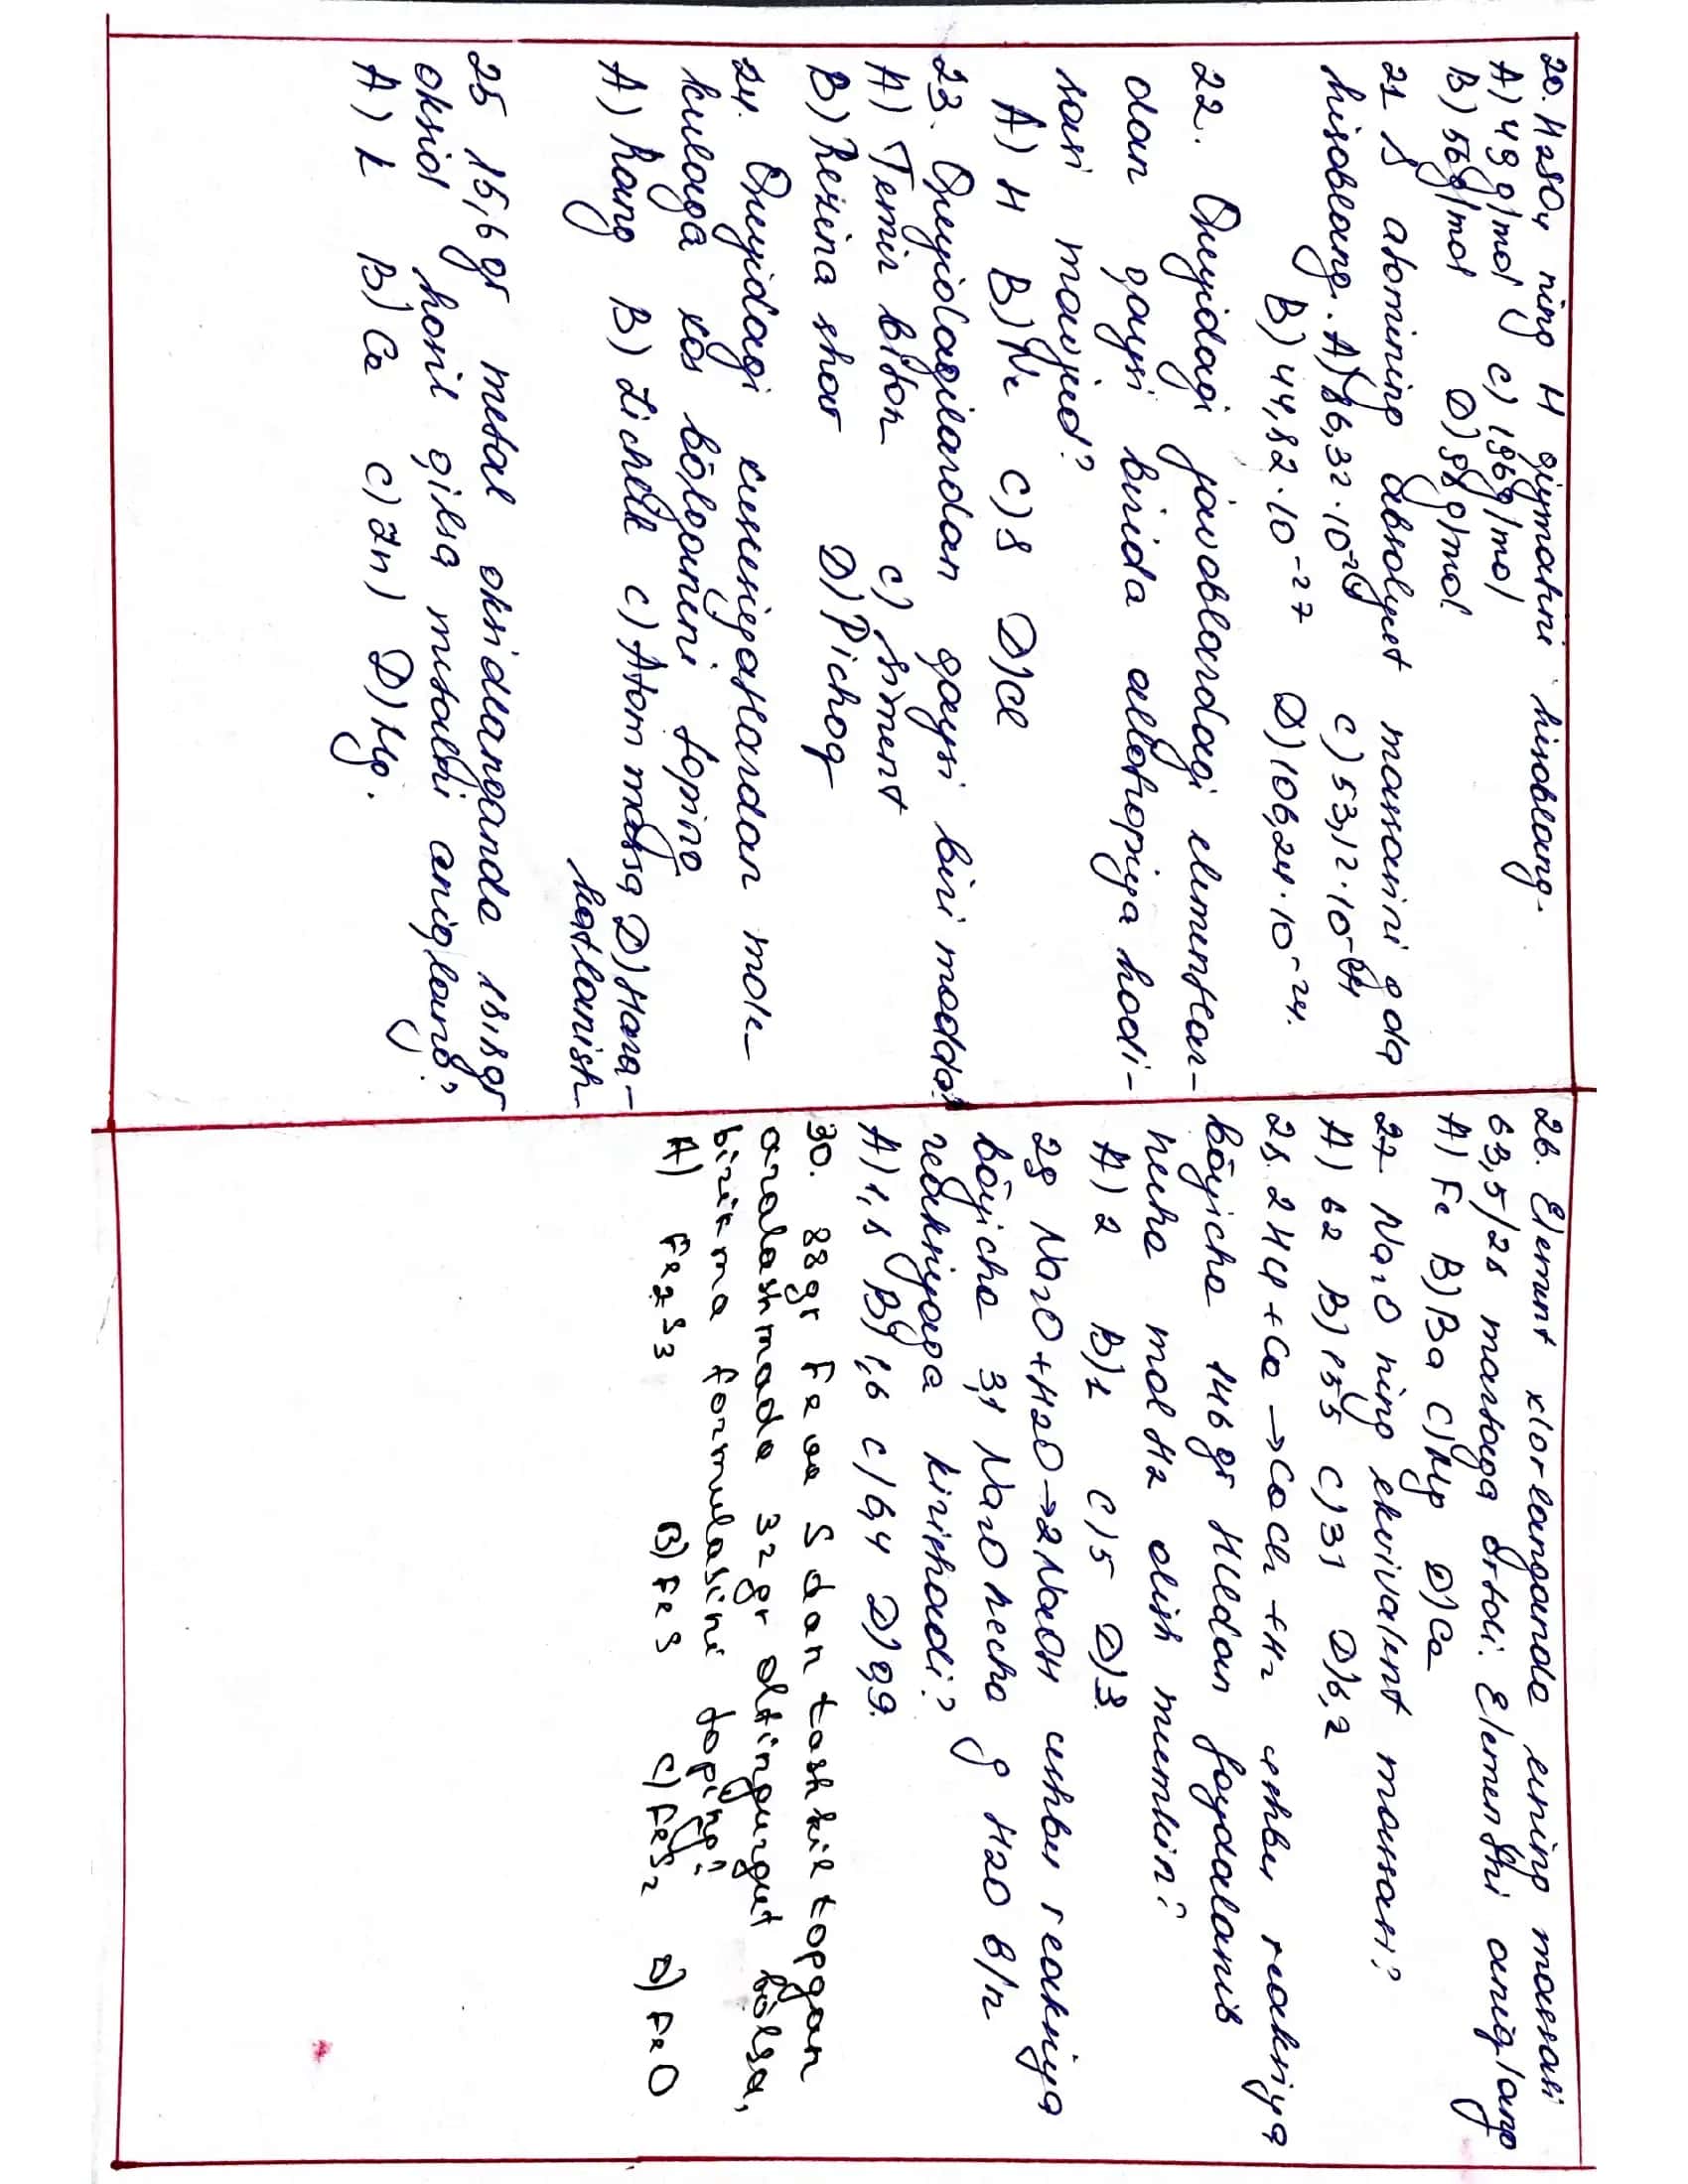 20. H2SO4 ning M qiymatini hisoblang.
A) 49 g/mol C) 196g/mol
B) 56g/mol D) 98g/mol
21 S atomining absolyut massasini g da
hisoblang. A) 86,32·10⁻²⁴ C) 53,12·10⁻²⁴
B) 44,82·10⁻²⁷ D) 106,24·10⁻²⁴.
22. Quyidagi javoblardagi elementlar-
dan qaysi birida allotropiya hodi-
sasi mavjud?
A) H B) He C) S D) Cl
23. Quyidagilardan qaysi biri modda?
A) Temir bidon C) Siment
B) Rezina shar D) Pichoq
24. Quyidagi xususiyatlardan mole-
kulaga xos bo'lganini toping
A) Rang B) Zichlik C) Atom massa D) Hara-
katlanish
25 15,6 gr metal oksidlanganda 18,8gr
oksid hosil qilsa metalni aniqlang?
A) K B) Ca C) Zn) D) Mg.
26. Element xlorlanganda uning massasi
63,5/28 martaga ortdi. Elementni aniqlang
A) Fe B) Ba C) Mg D) Ca
27. Na2O ning ekvivalent massasi?
A) 62 B) 155 C) 31 D) 6,2
28. 2HCl+Ca→CaCl2+H2 ushbu reaksiya
bo'yicha 146 gr HCldan foydalanib
necha mol H2 olish mumkin?
A) 2 B) 1 C) 5 D) 3.
29 Na2O+H2O→2NaOH ushbu reaksiya
bo'yicha 3,1 Na2O necha g H2O b/n
reaksiyaga kirishadi?
A) 1,8 B) 1,6 C) 6,4 D) 0,9.
30. 88gr Fe va S dan tashkil topgan
aralashmada 32 gr oltingugurt bo'lsa,
birikma formulasini toping?
A) Fe2S3 B) FeS C) FeS2 D) FeO